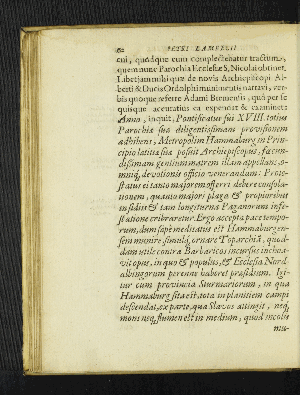 62 PETRI LAMBECII
cni, quodque eum complectebatur tractum,
quem nunc Parochia Ecclesiæ S. Nicolai obtinet.
Libet jam mihi quæ de novis Archiepiscopi Al-
berti & Ducis Ordolphi munimentis narravi, ver-
bis quoque referre Adami Bremensis, quo per se
quisque accuratius ea expendat & examinet:
Anno, inquit, Pontificatus sui XVIII. totius
Parochiæ suæ diligentissimam provisionem
adhibens, Metropolim Hammaburg in Prin-
cipio latitiæ suæ posuit Archiepiscopus, fœcun-
dissimam gentium matrem illam appellans, o-
mniq; devotionis officio venerandam: Prote-
status ei tanto majorem offerri debere consola-
tionem, quanto majori plaga & propioribus
insidiis & tam longiturna Paganorum infe-
statione cribraretur. Ergo accepta pace tempo-
rum, dum sæpe meditatus est Hammaburgen-
sem monire simulq; ornare Toparchiā, quod-
dam utile contra Barbaricos incursus inchoa-
vit opus, in quo & populus, & Ecclesia Nord-
albingorum perenne haberet præsidium. Igi-
tur cum provincia Sturmariorum, in qua
Hammaburg sita est, tota in planitiem campi
descendat, ex parte, qua Slavos attingit, neq;
mons neq; flumen est in medium, quod incolis
mu-